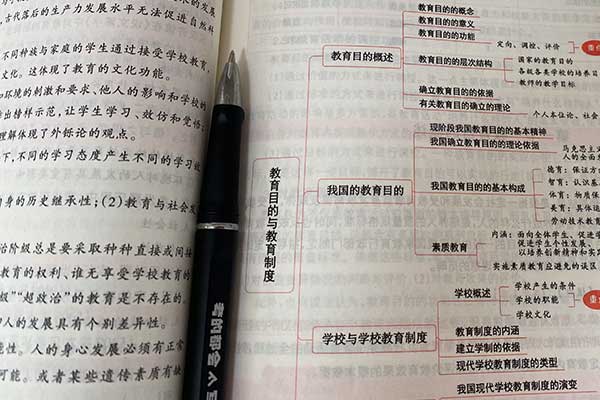 的发展
古代落后的生产力发展水平无法促进自然科
不同种族与家庭的学生通过接受学校教育,
文化。这体现了教育的文化功能。
和环境的刺激和要求、他人的影响和学校的
出替样示范,让学生学习、效仿和觉悟;
理解体现了外铄论的观点。
下,不同的学习态度产生不同的学习
自身的历史继承性;(2)教育与社会发
治阶级总是要采取种种直接或间接
教育的权利、谁无享受学校教育的
级”“超政治”的教育是不存在的。
人的发展具有个别差异性。
能性。人的身心发展必须有正常
可能。或者某些遗传素质有缺
考的都会
教育目的与教育制度
教育目的概述
教育目的的概念
教育目的的意义
教育目的的功能
定向、调控、评价
教育目的的层次结构
国家的教育目的
各级各类学校的培养目
教师的教学目标
确立教育目的的依据
有关教育目的确立的理论
个人本位论、社会
我国的教育目的
现阶段我国教育目的的基本精神
我国确立教育目的的理论依据
马克思主义
人的全面发
我国教育目的的基本构成
德育:保证方
智育:认识基
体育:物质保
美育:具体运
劳动技术教育
素质教育
内涵:面向全体学生、促进学
促进学生个性发展、
以培养创新精神和实践
实施素质教育应避免的误区
学校与学校教育制度
学校概述
学校产生的条件
学校的职能
学校文化
教育制度的内涵
建立学制的依据
现代学校教育制度的类型
我国现代学校教育制度的演变